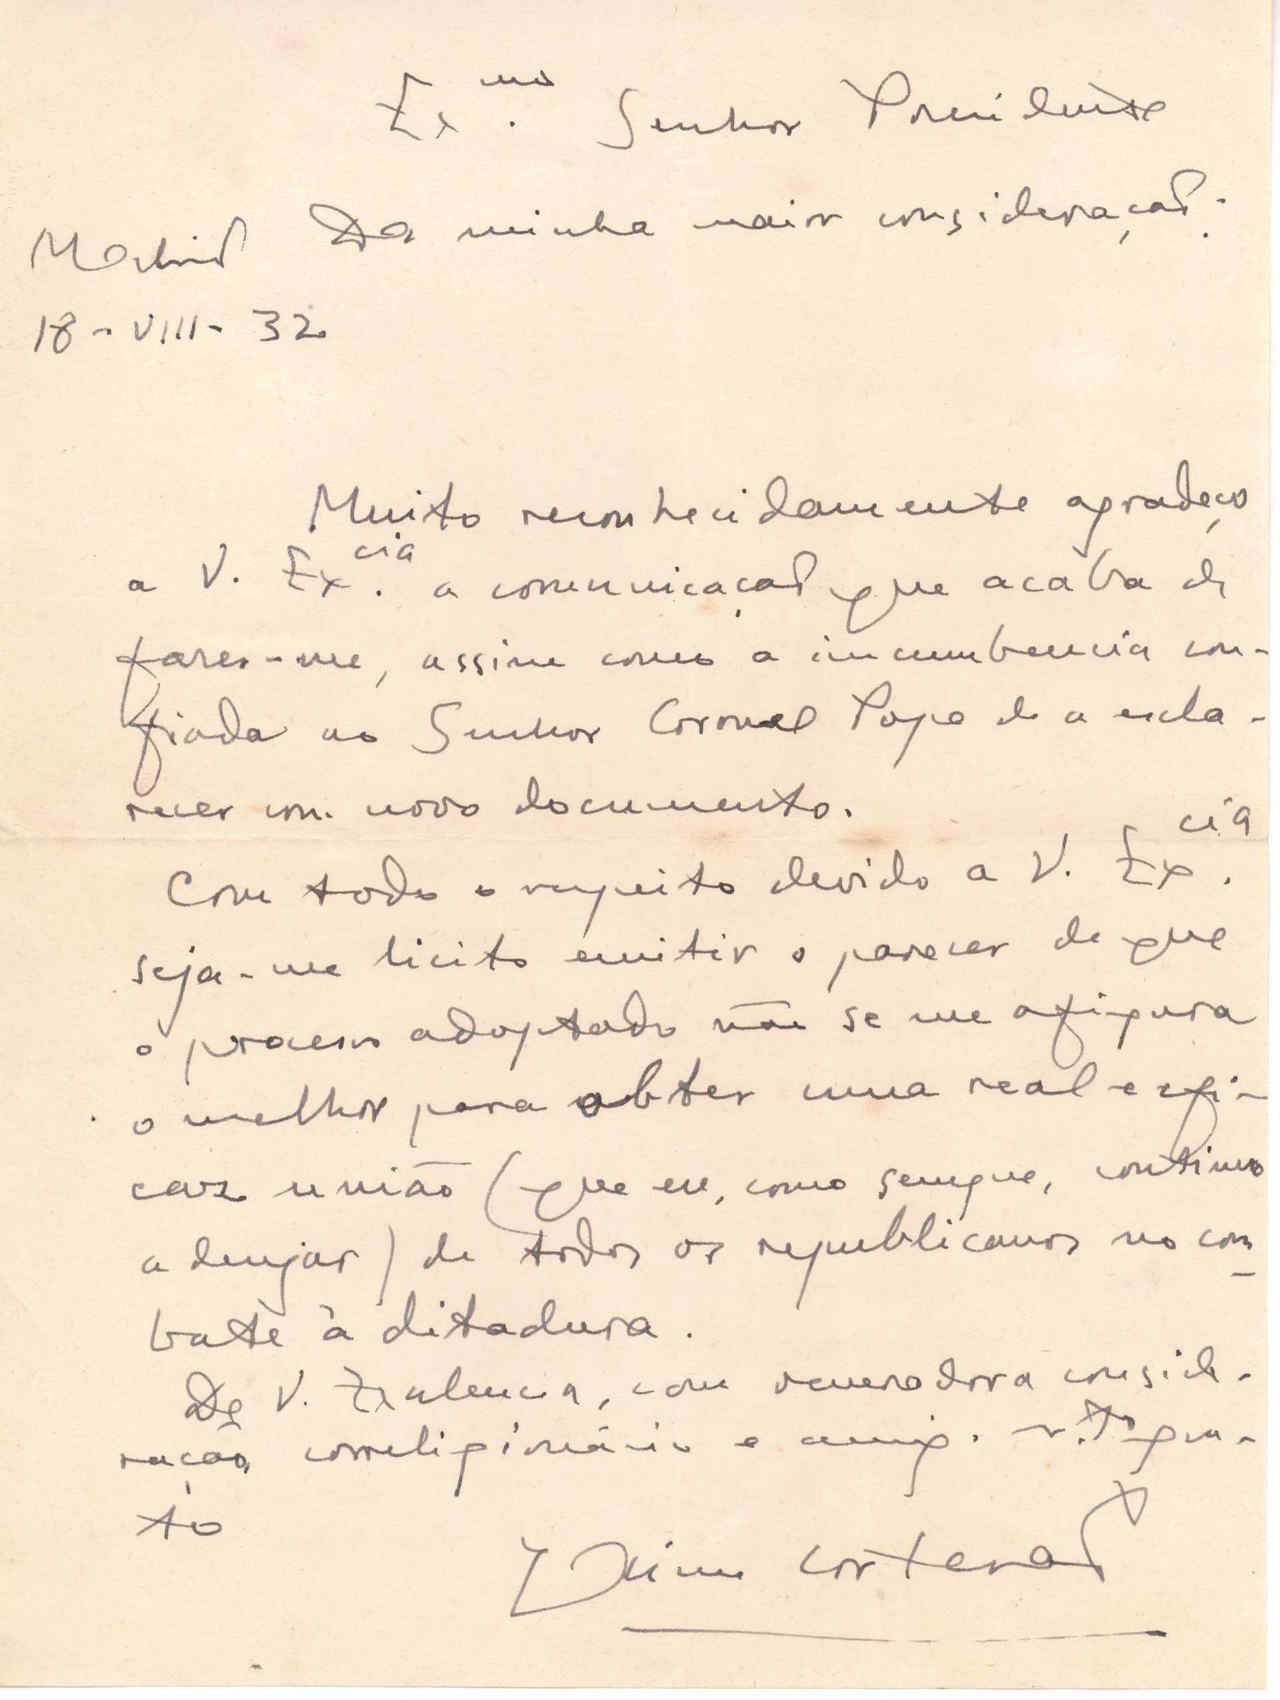 Ex.mo Senhor Presidente
Da minha maior consideração:
Madrid
18-VIII-32
Muito reconhecidamente agradeço
a V. Ex.cia a comunicação que acaba de
fazer-me, assim como a incumbencia con-
fiada ao Senhor Coronel Pope de a escla-
recer com novo documento.
Com todo o respeito devido a V. Ex.cia
seja-me licito emitir o parecer de que
o processo adoptado não se me afigura
o melhor para obter uma real e efi-
caz união (que eu, como sempre, continuo
a desejar) de todos os republicanos no com
bate à ditadura.
De V. Excelencia, com veneradora conside-
ração, correligionário e amig. m.to gra-
to
Jaime Cortesão